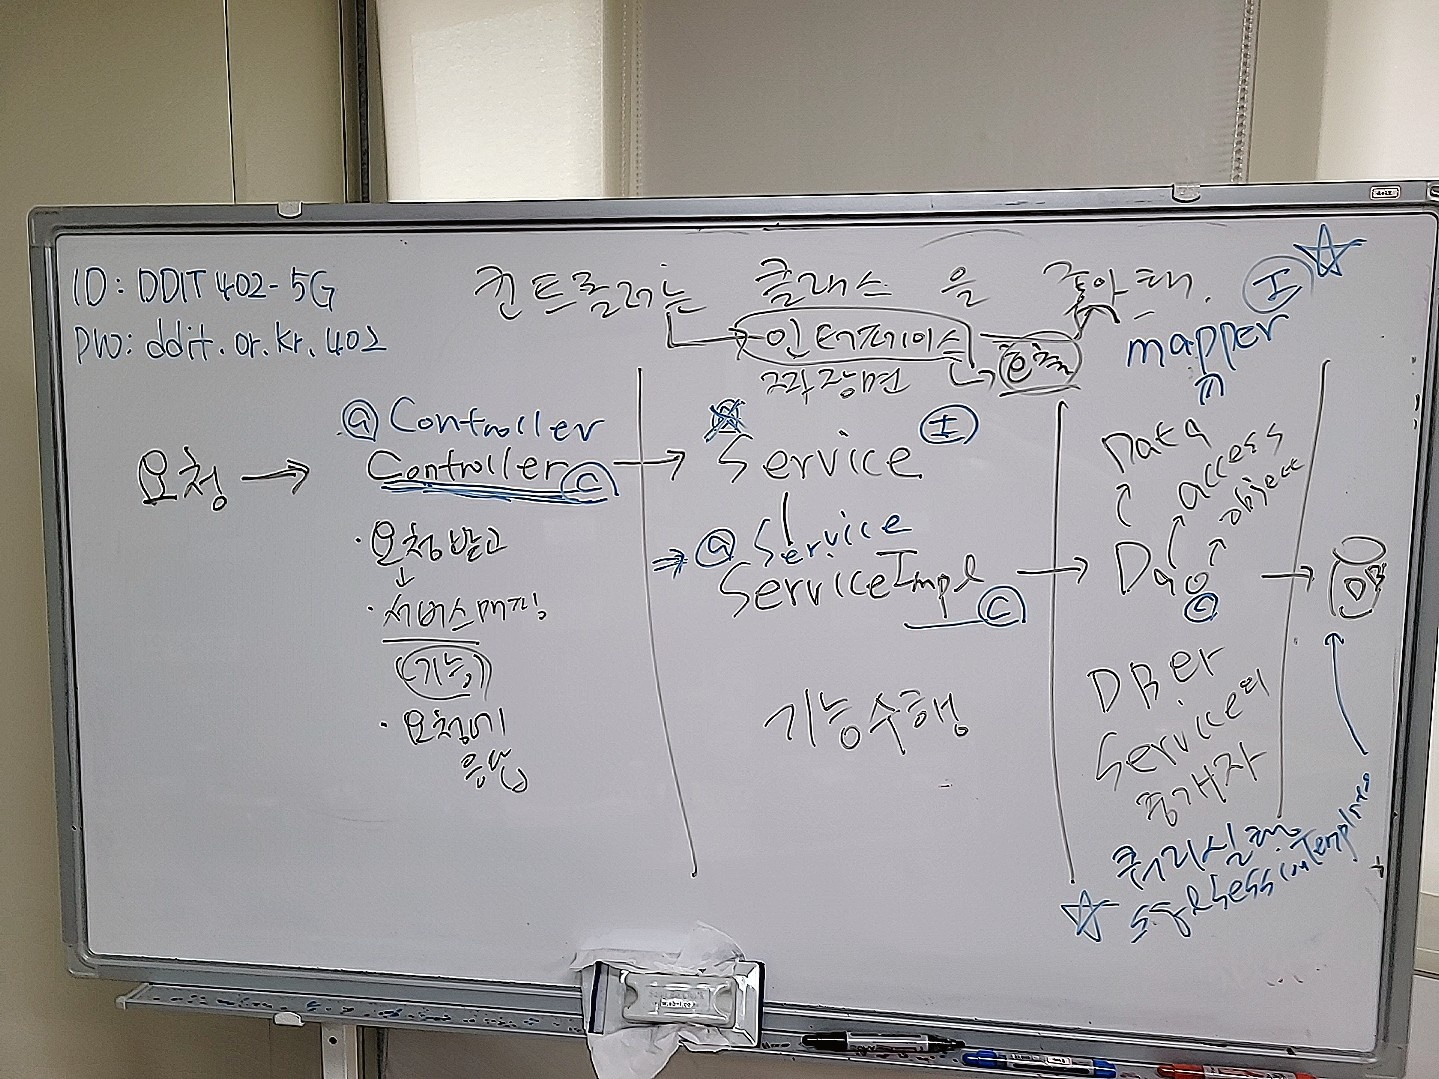 ID: DDIT402-5G
PW: ddit.or.kr.402
컨트롤러는 클래스 을 좋아해.
인터페이스
과장면
I
mapper
@Controller
Controller C
요청
Service I
@Service
ServiceImpl C
Data
access
object
Dao C
DB
·요청받고
·서비스매칭
(기능)
·요청에
응답
기능수행
DB와
Service의
중개자
쿼리실행
SqlSessionTemplate